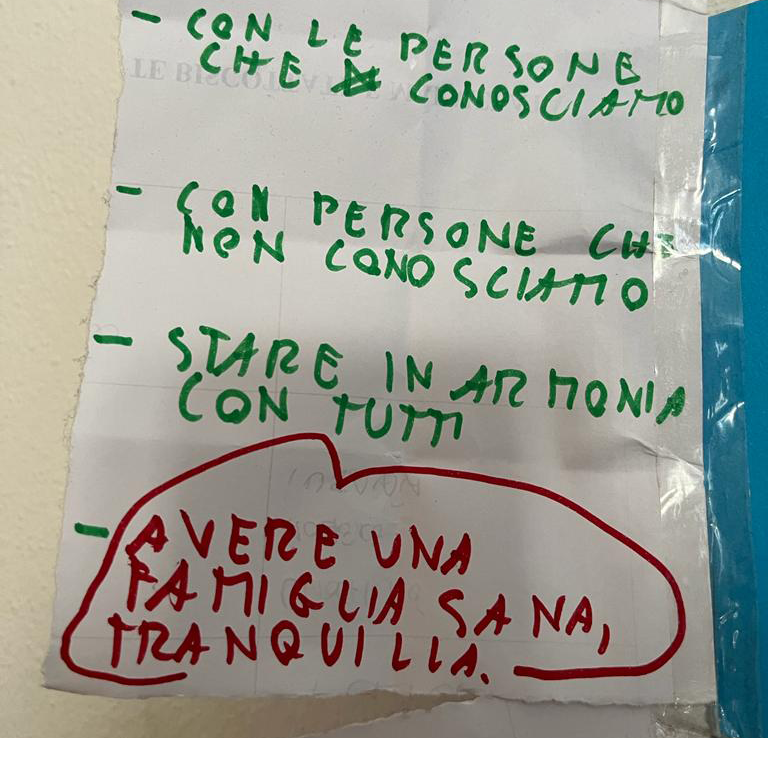 - CON LE PERSONE
CHE CONOSCIAMO
- CON PERSONE CHE
NON CONOSCIAMO
- STARE IN ARMONIA
CON TUTTI
- AVERE UNA
FAMIGLIA SANA,
TRANQUILLA.